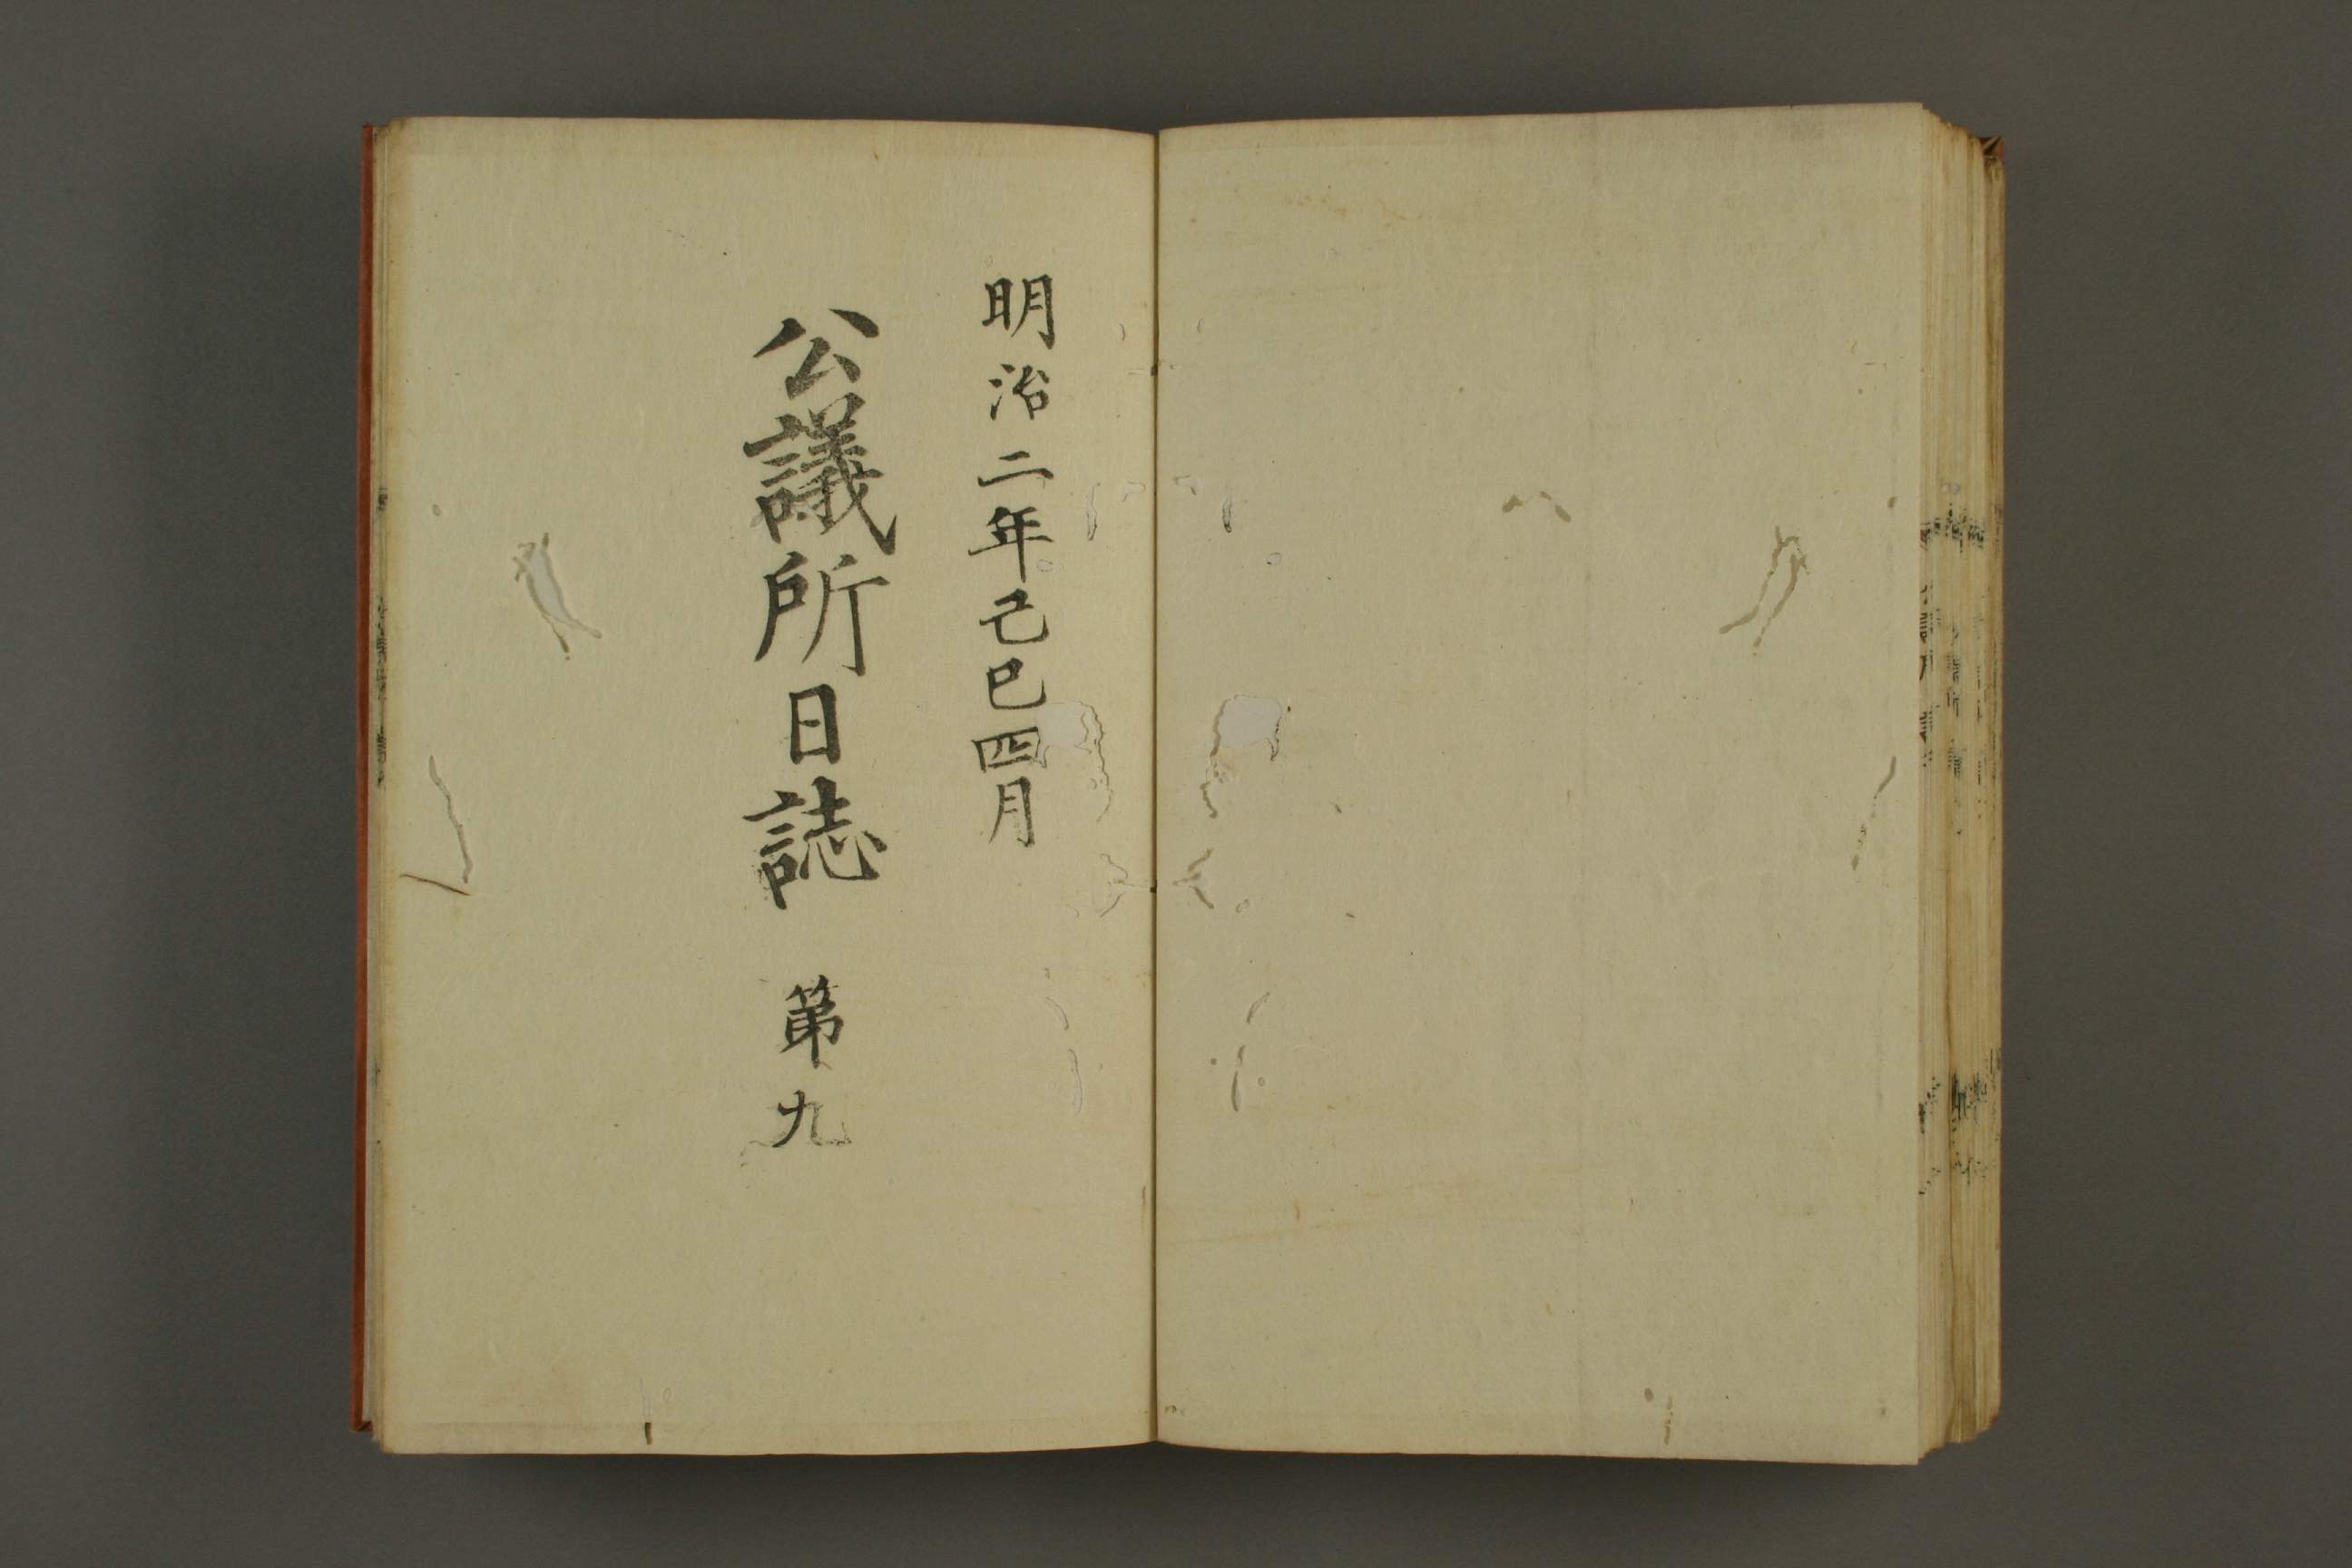 明治二年己巳四月
公議所日誌 第九